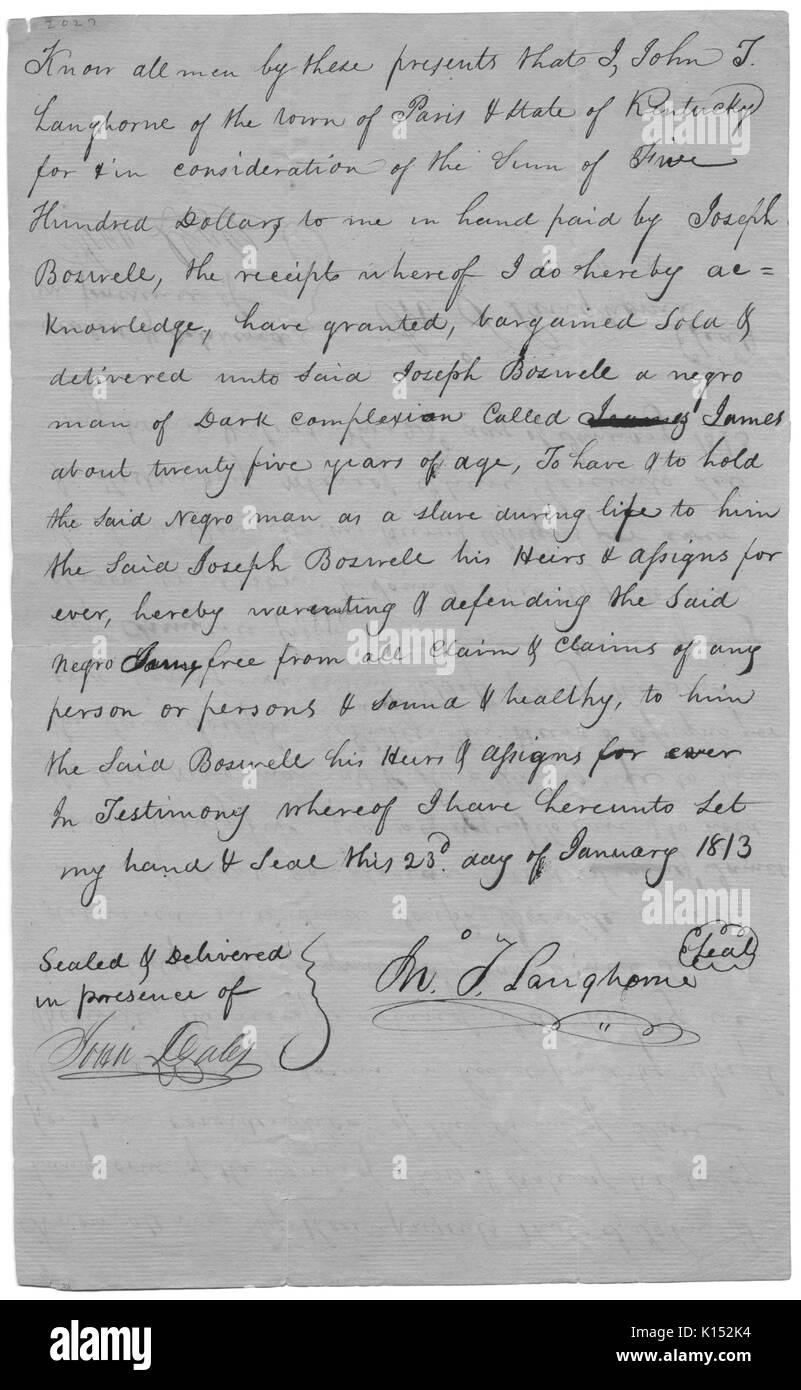 2027
Know all men by these presents that I, John T.
Langhorne of the town of Paris & state of Kentucky
for & in consideration of the Sum of Five
Hundred Dollars to me in hand paid by Joseph
Boswell, the receipt whereof I do hereby ac=
knowledge, have granted, bargained Sold &
delivered unto Said Joseph Boswell a negro
man of Dark complexion Called James
about twenty five years of age, To have & to hold
the Said Negro man as a slave during life to him
the Said Joseph Boswell his Heirs & assigns for
ever, hereby warenting & defending the Said
negro James free from all Claim & Claims of any
person or persons & Sound & healthy, to him
the Said Boswell his Heirs & assigns for ever
In Testimony whereof I have hereunto Set
my hand & Seal this 23d. day of January 1813
Sealed & Delivered
in presence of
Jno. T. Langhorne Seal
John
alamy stock photo
alamy
K152K4
www.alamy.com